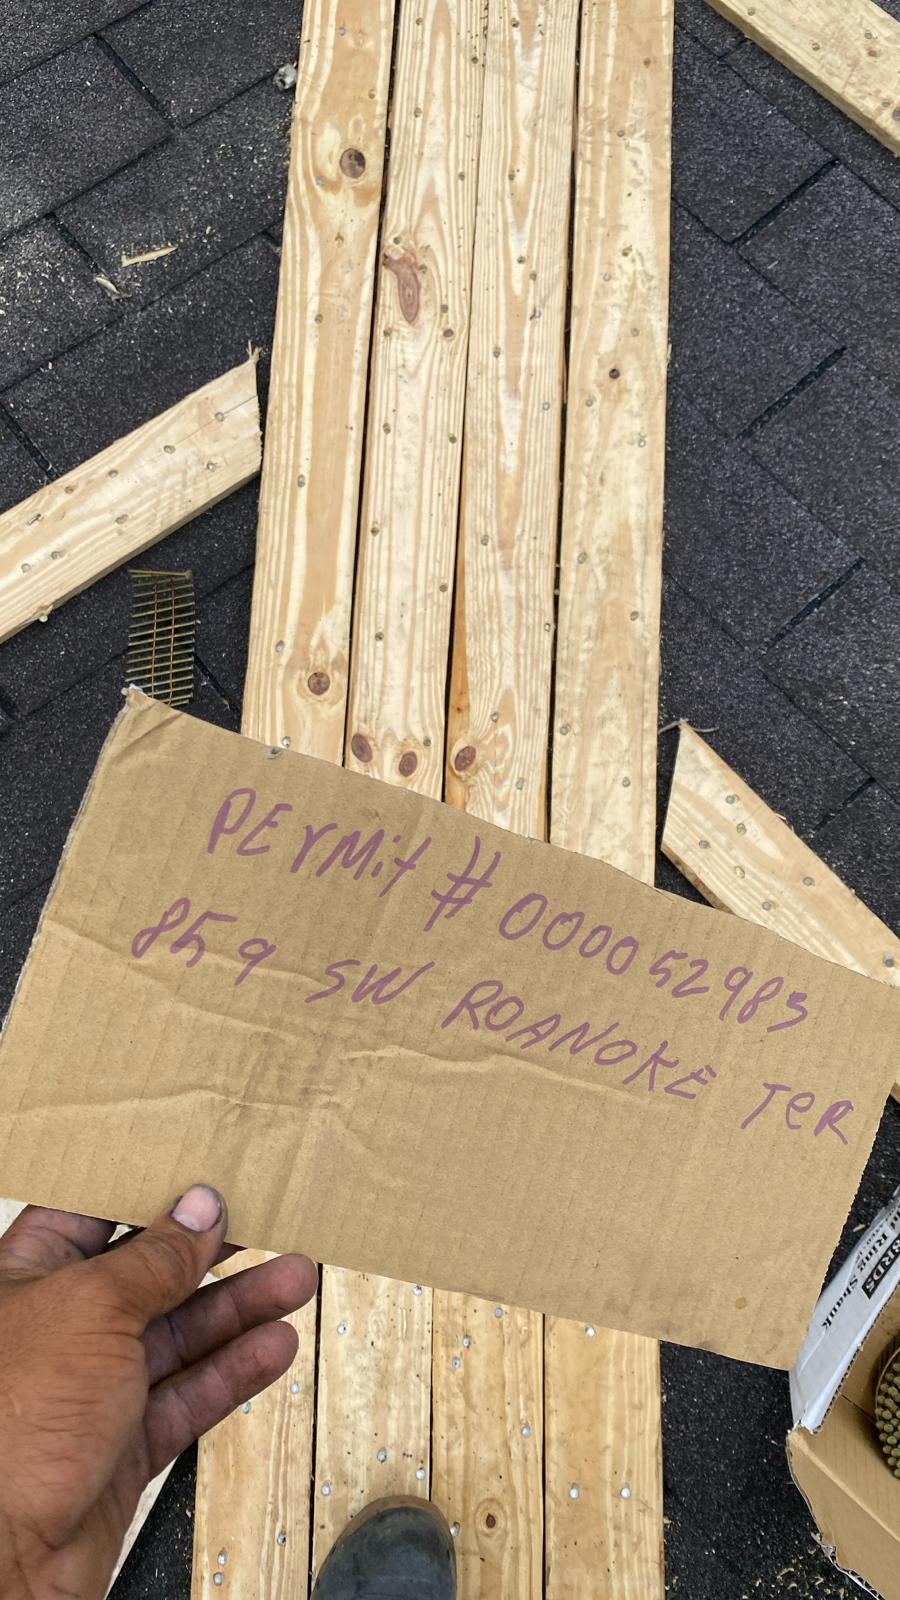 PERMit # 000052983
859 SW ROANOKE TeR
RRDS
Ring Shank